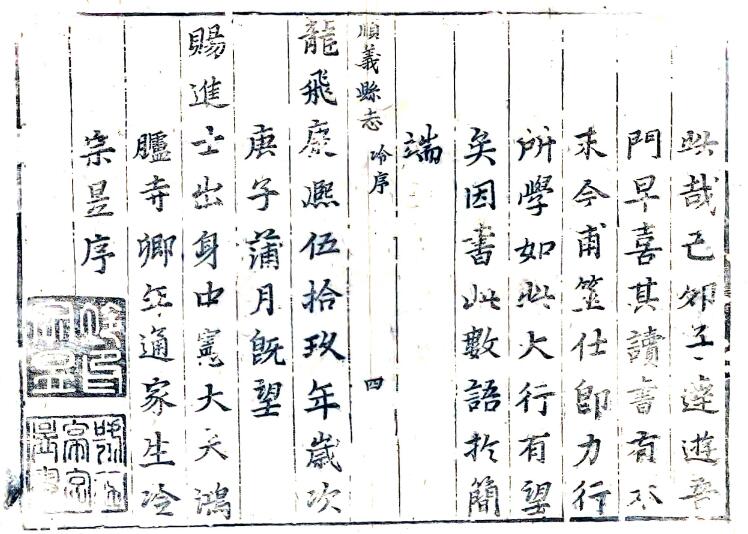 此哉己卯子遊吾
門早喜其讀書有本
末今甫筮仕即力行
所學如此大行有望
矣因書此數語於簡
端
順義縣志 冷序 四
龍飛康熙伍拾玖年歲次
庚子蒲月既望
賜進士出身中憲大夫鴻
臚寺卿年通家生冷
宗昱序